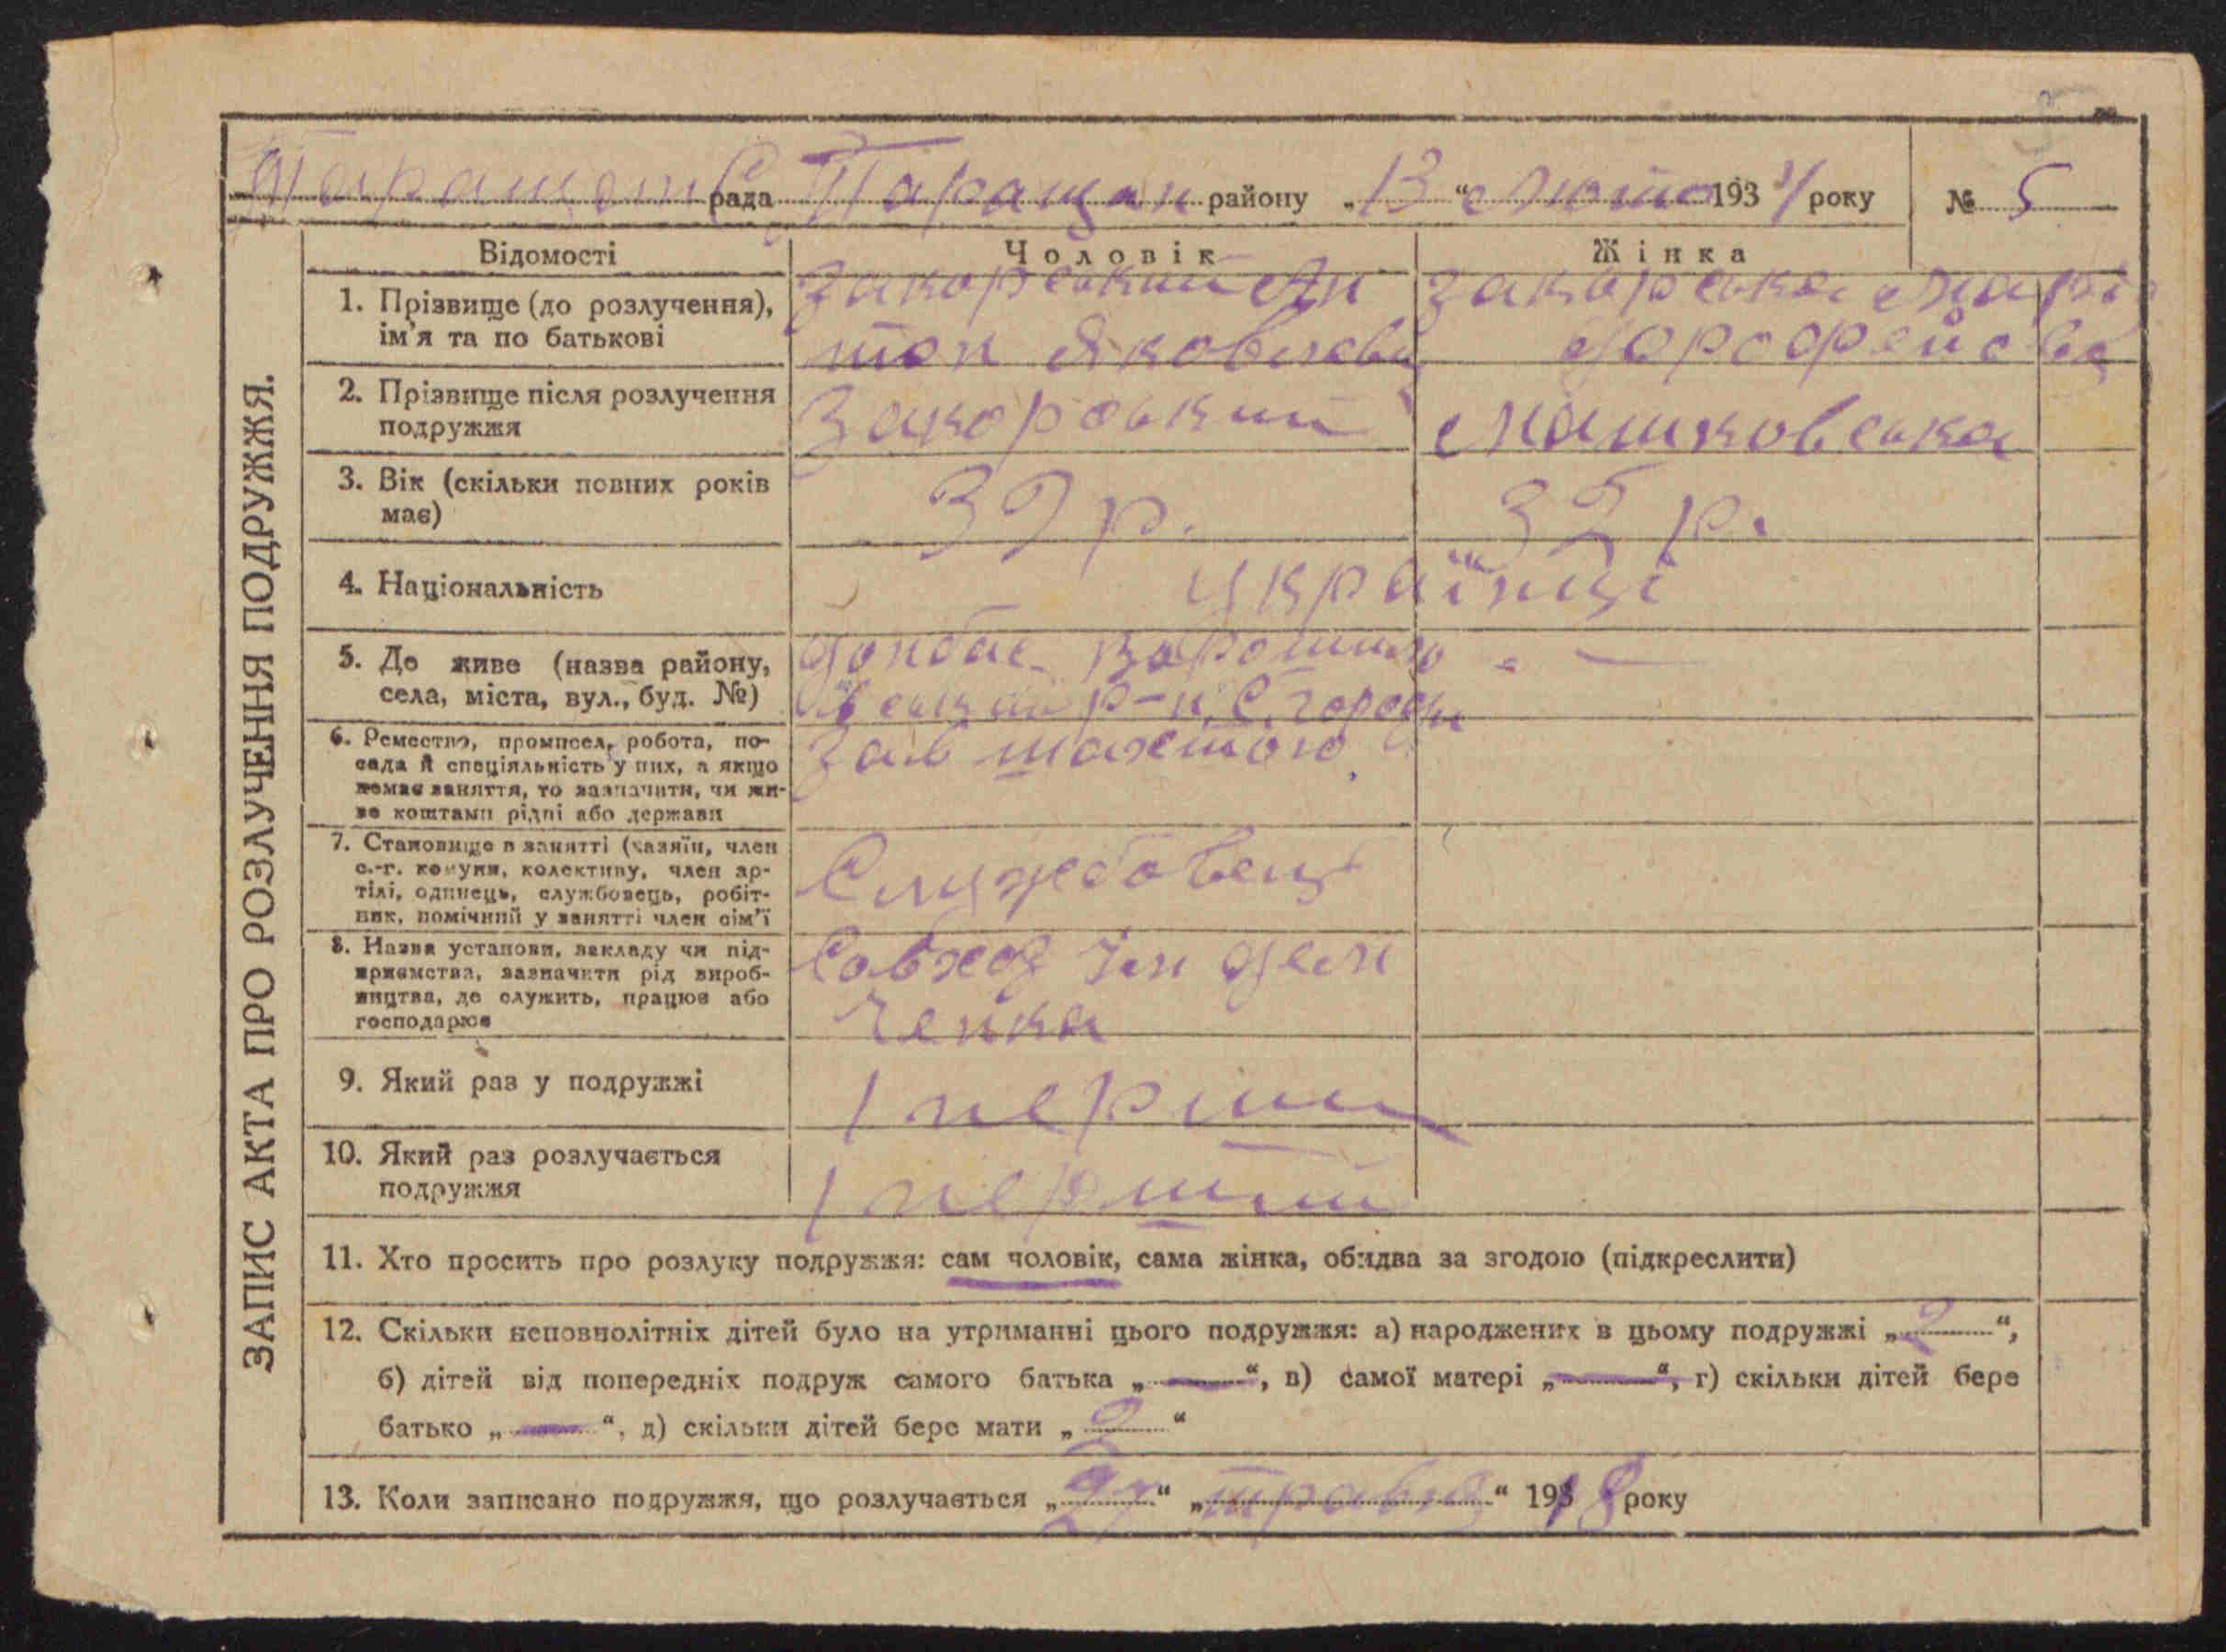 ЗАПИС АКТА ПРО РОЗЛУЧЕННЯ ПОДРУЖЖЯ.
рада Таращан району „13“ Лютого 1934 року № 5
Відомості Чоловік Жінка
1. Прізвище (до розлучення), Закорський Ан Закорська Марі
ім'я та по батькові тон Яковлеви Дорофеєва
2. Прізвище після розлучення Закорський Машковська
подружжя
3. Вік (скільки повних років 39 р. 35 р.
має)
4. Національність українці
5. Де живе (назва району, Донбас Ворошило —
села, міста, вул., буд. №) р-н С.
6. Ремество, промисел, робота, по- Зав шахтою
сада й спеціяльність у них, а якщо
немає заняття, то зазначити, чи жи-
ве коштами рідні або держави
7. Становище в занятті (хазяїн, член Службовець
с.-г. комуни, колективу, член ар-
тілі, одинець, службовець, робіт-
ник, помічний у занятті член сім'ї
8. Назва установи, закладу чи під- Совхоз Ім Дем
приємства, зазначити рід вироб- ченка
ництва, де служить, працює або
господарює
9. Який раз у подружжі 1 перши
10. Який раз розлучається 1 перший
подружжя
11. Хто просить про розлуку подружжя: сам чоловік, сама жінка, обидва за згодою (підкреслити)
12. Скільки неповнолітніх дітей було на утриманні цього подружжя: а) народжених в цьому подружжі „2“,
б) дітей від попередніх подруж самого батька „—“, в) самої матері „—“, г) скільки дітей бере
батько „—“, д) скільки дітей бере мати „2“
13. Коли записано подружжя, що розлучається „27“ „травня“ 1918 року